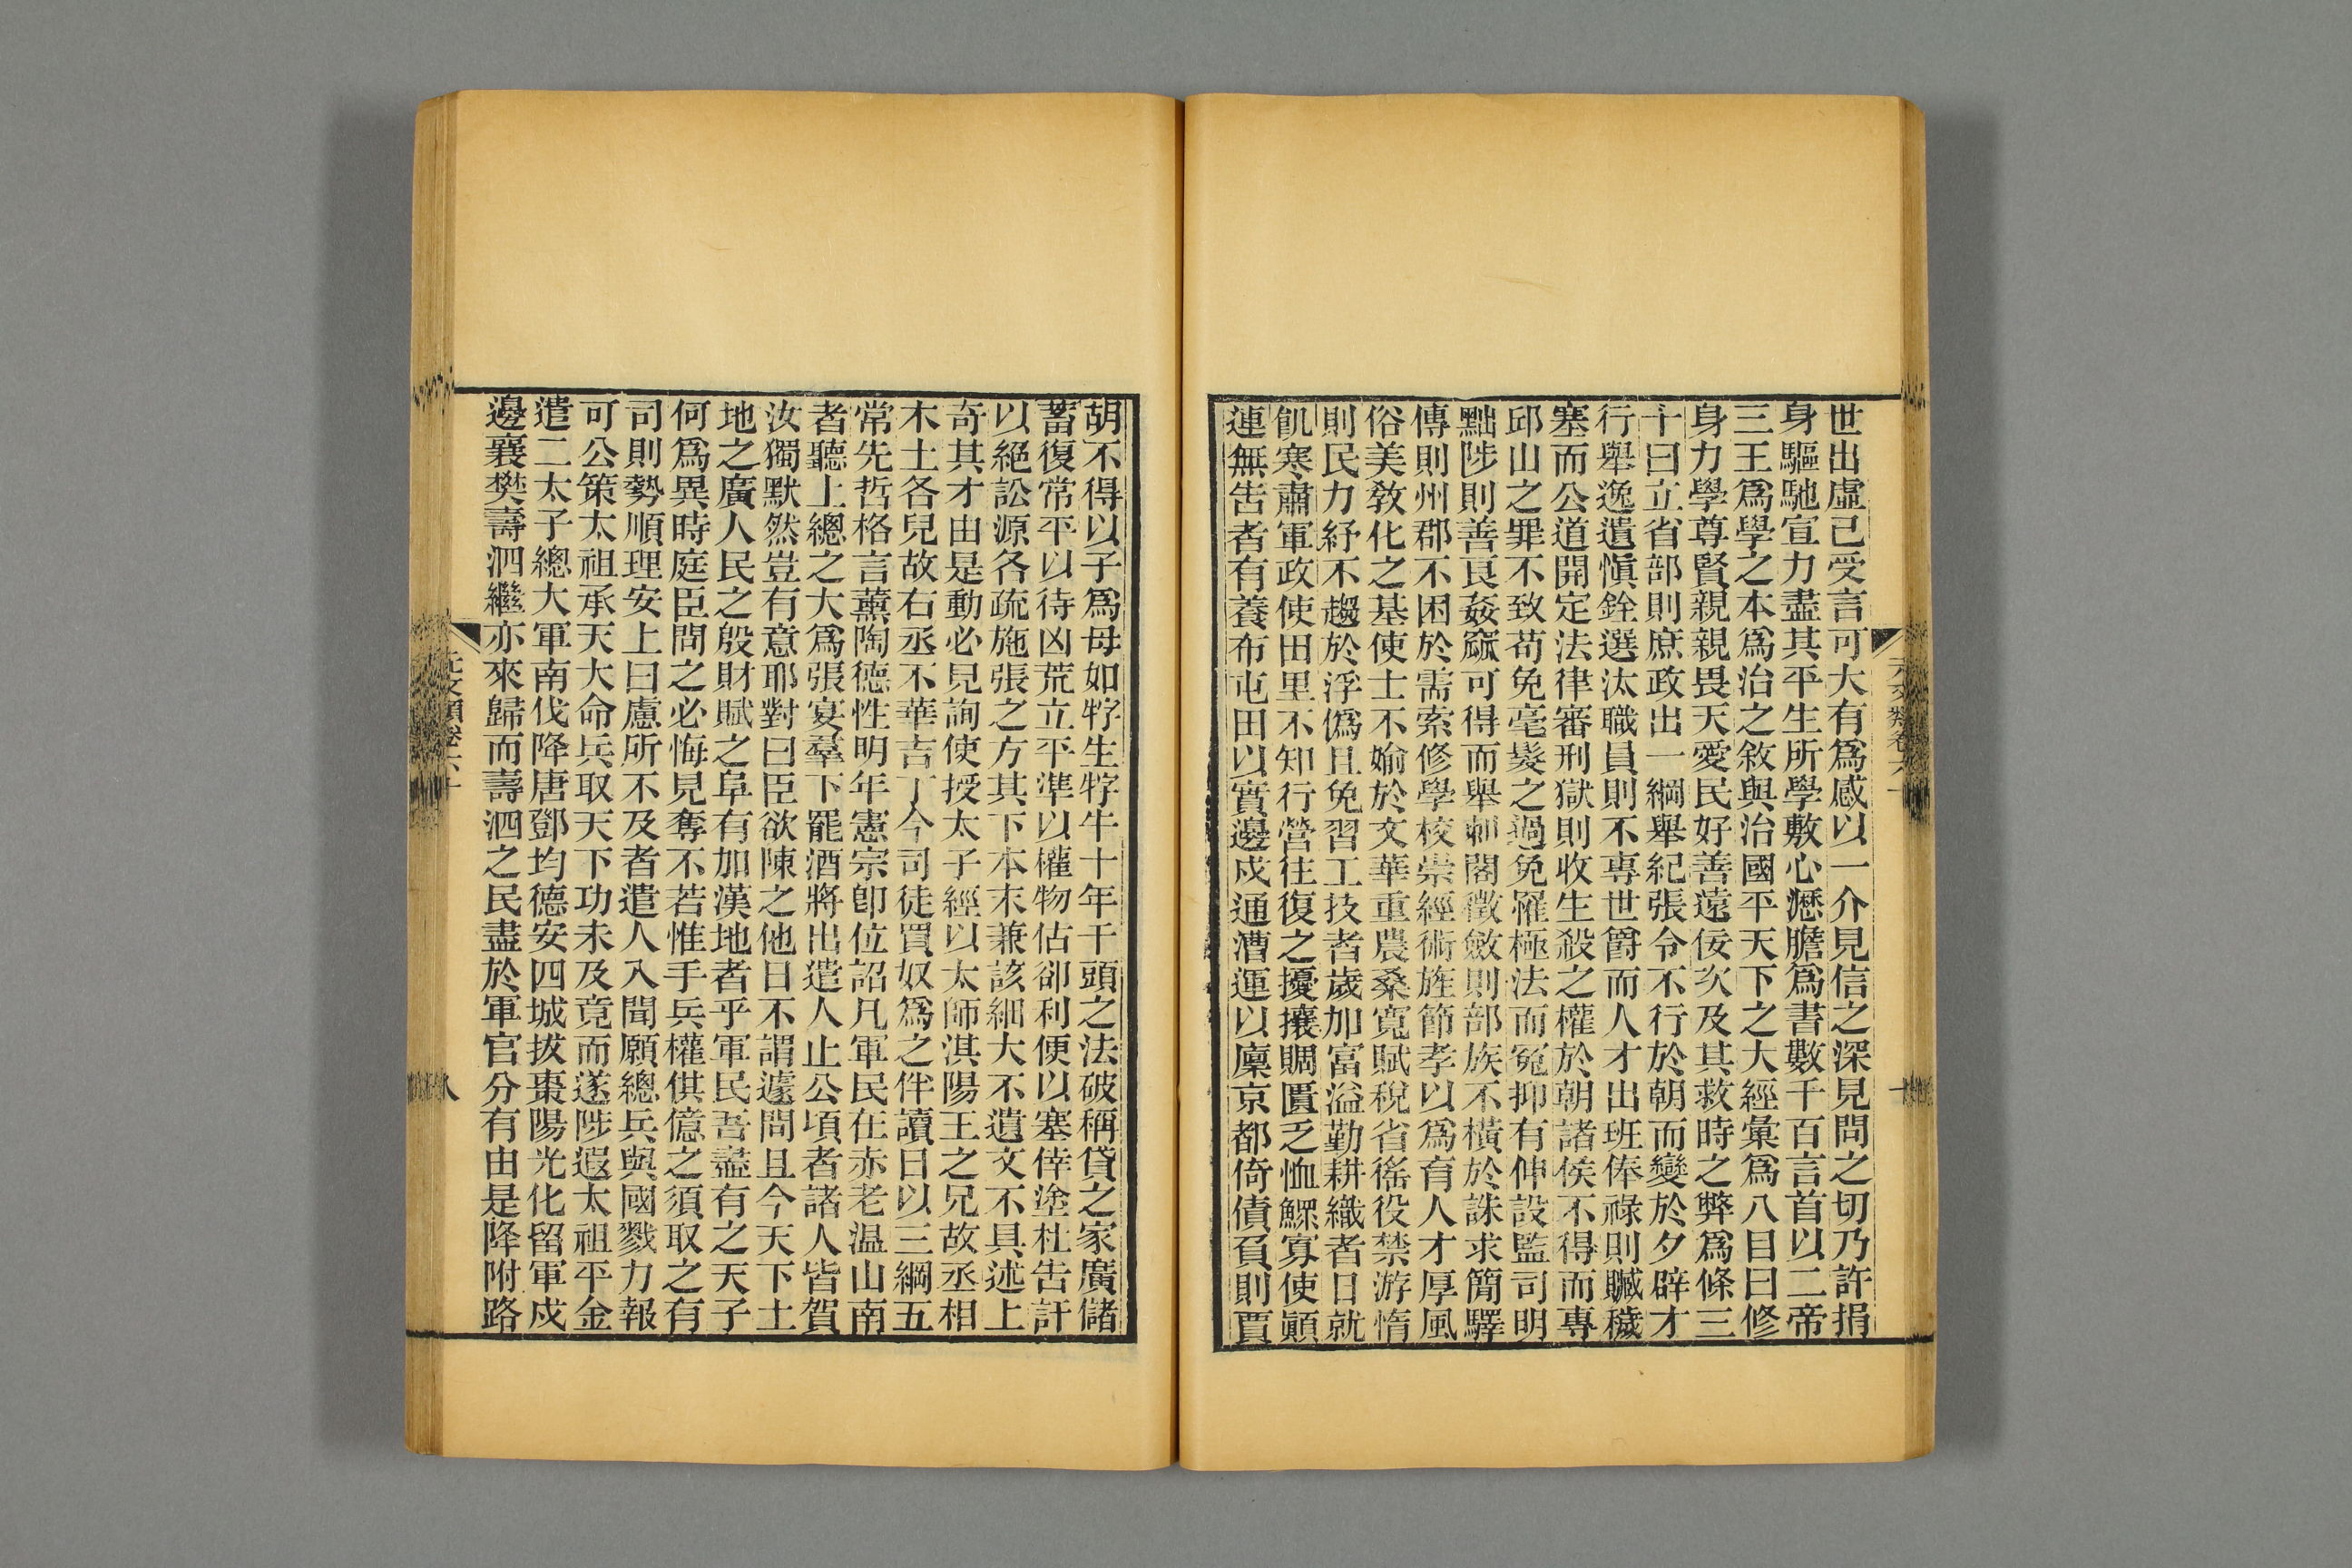 世出虛己受言可大有爲感以一介見信之深見問之切乃許捐
身驅馳宣力盡其平生所學敷心瀝膽爲書數千百言首以二帝
三王爲學之本爲治之敘與治國平天下之大經彙爲八目曰修
身力學尊賢親親畏天愛民好善遠佞次及其救時之弊爲條三
十曰立省部則庶政出一綱舉紀張令不行於朝而變於夕辟才
行舉逸遺愼銓選汰職員則不專世爵而人才出班俸祿則贓穢
塞而公道開定法律審刑獄則收生殺之權於朝諸侯不得而專
邱山之罪不致苟免毫髮之過免罹極法而冤抑有伸設監司明
黜陟則善良姦窳可得而舉刺閣徵斂則部族不橫於誅求簡驛
傳則州郡不困於需索修學校崇經術旌節孝以爲育人才厚風
俗美敎化之基使士不媮於文華重農桑寬賦稅省徭役禁游惰
則民力紓不趨於浮僞且免習工技者歲加富溢勤耕織者日就
飢寒肅軍政使田里不知行營往復之擾攘賙匱乏恤鰥寡使顚
連無吿者有養布屯田以實邊戍通漕運以廩京都倚債負則賈
元文類卷六十
胡不得以子爲母如牸生牸牛十年千頭之法破稱貸之家廣儲
蓄復常平以待凶荒立平準以權物估卻利便以塞倖塗杜吿訐
以絕訟源各疏施張之方其下本末兼該細大不遺文不具述上
奇其才由是動必見詢使授太子經以太師淇陽王之兄故丞相
木土各兒故右丞不華吉丁今司徒買奴爲之伴讀日以三綱五
常先哲格言薰陶德性明年憲宗卽位詔凡軍民在赤老温山南
者聽上總之大爲張宴羣下罷酒將出遣人止公頃者諸人皆賀
汝獨默然豈有意耶對曰臣欲陳之他日不謂遽問且今天下土
地之廣人民之殷財賦之阜有加漢地者乎軍民吾盡有之天子
何爲異時庭臣間之必悔見奪不若惟手兵權供億之須取之有
司則勢順理安上曰慮所不及者遣人入聞願總兵與國戮力報
可公策太祖承天大命兵取天下功未及竟而遂陟遐太祖平金
遣二太子總大軍南伐降唐鄧均德安四城拔棗陽光化留軍戍
邊襄樊壽泗繼亦來歸而壽泗之民盡於軍官分有由是降附路
元文類卷六十
八